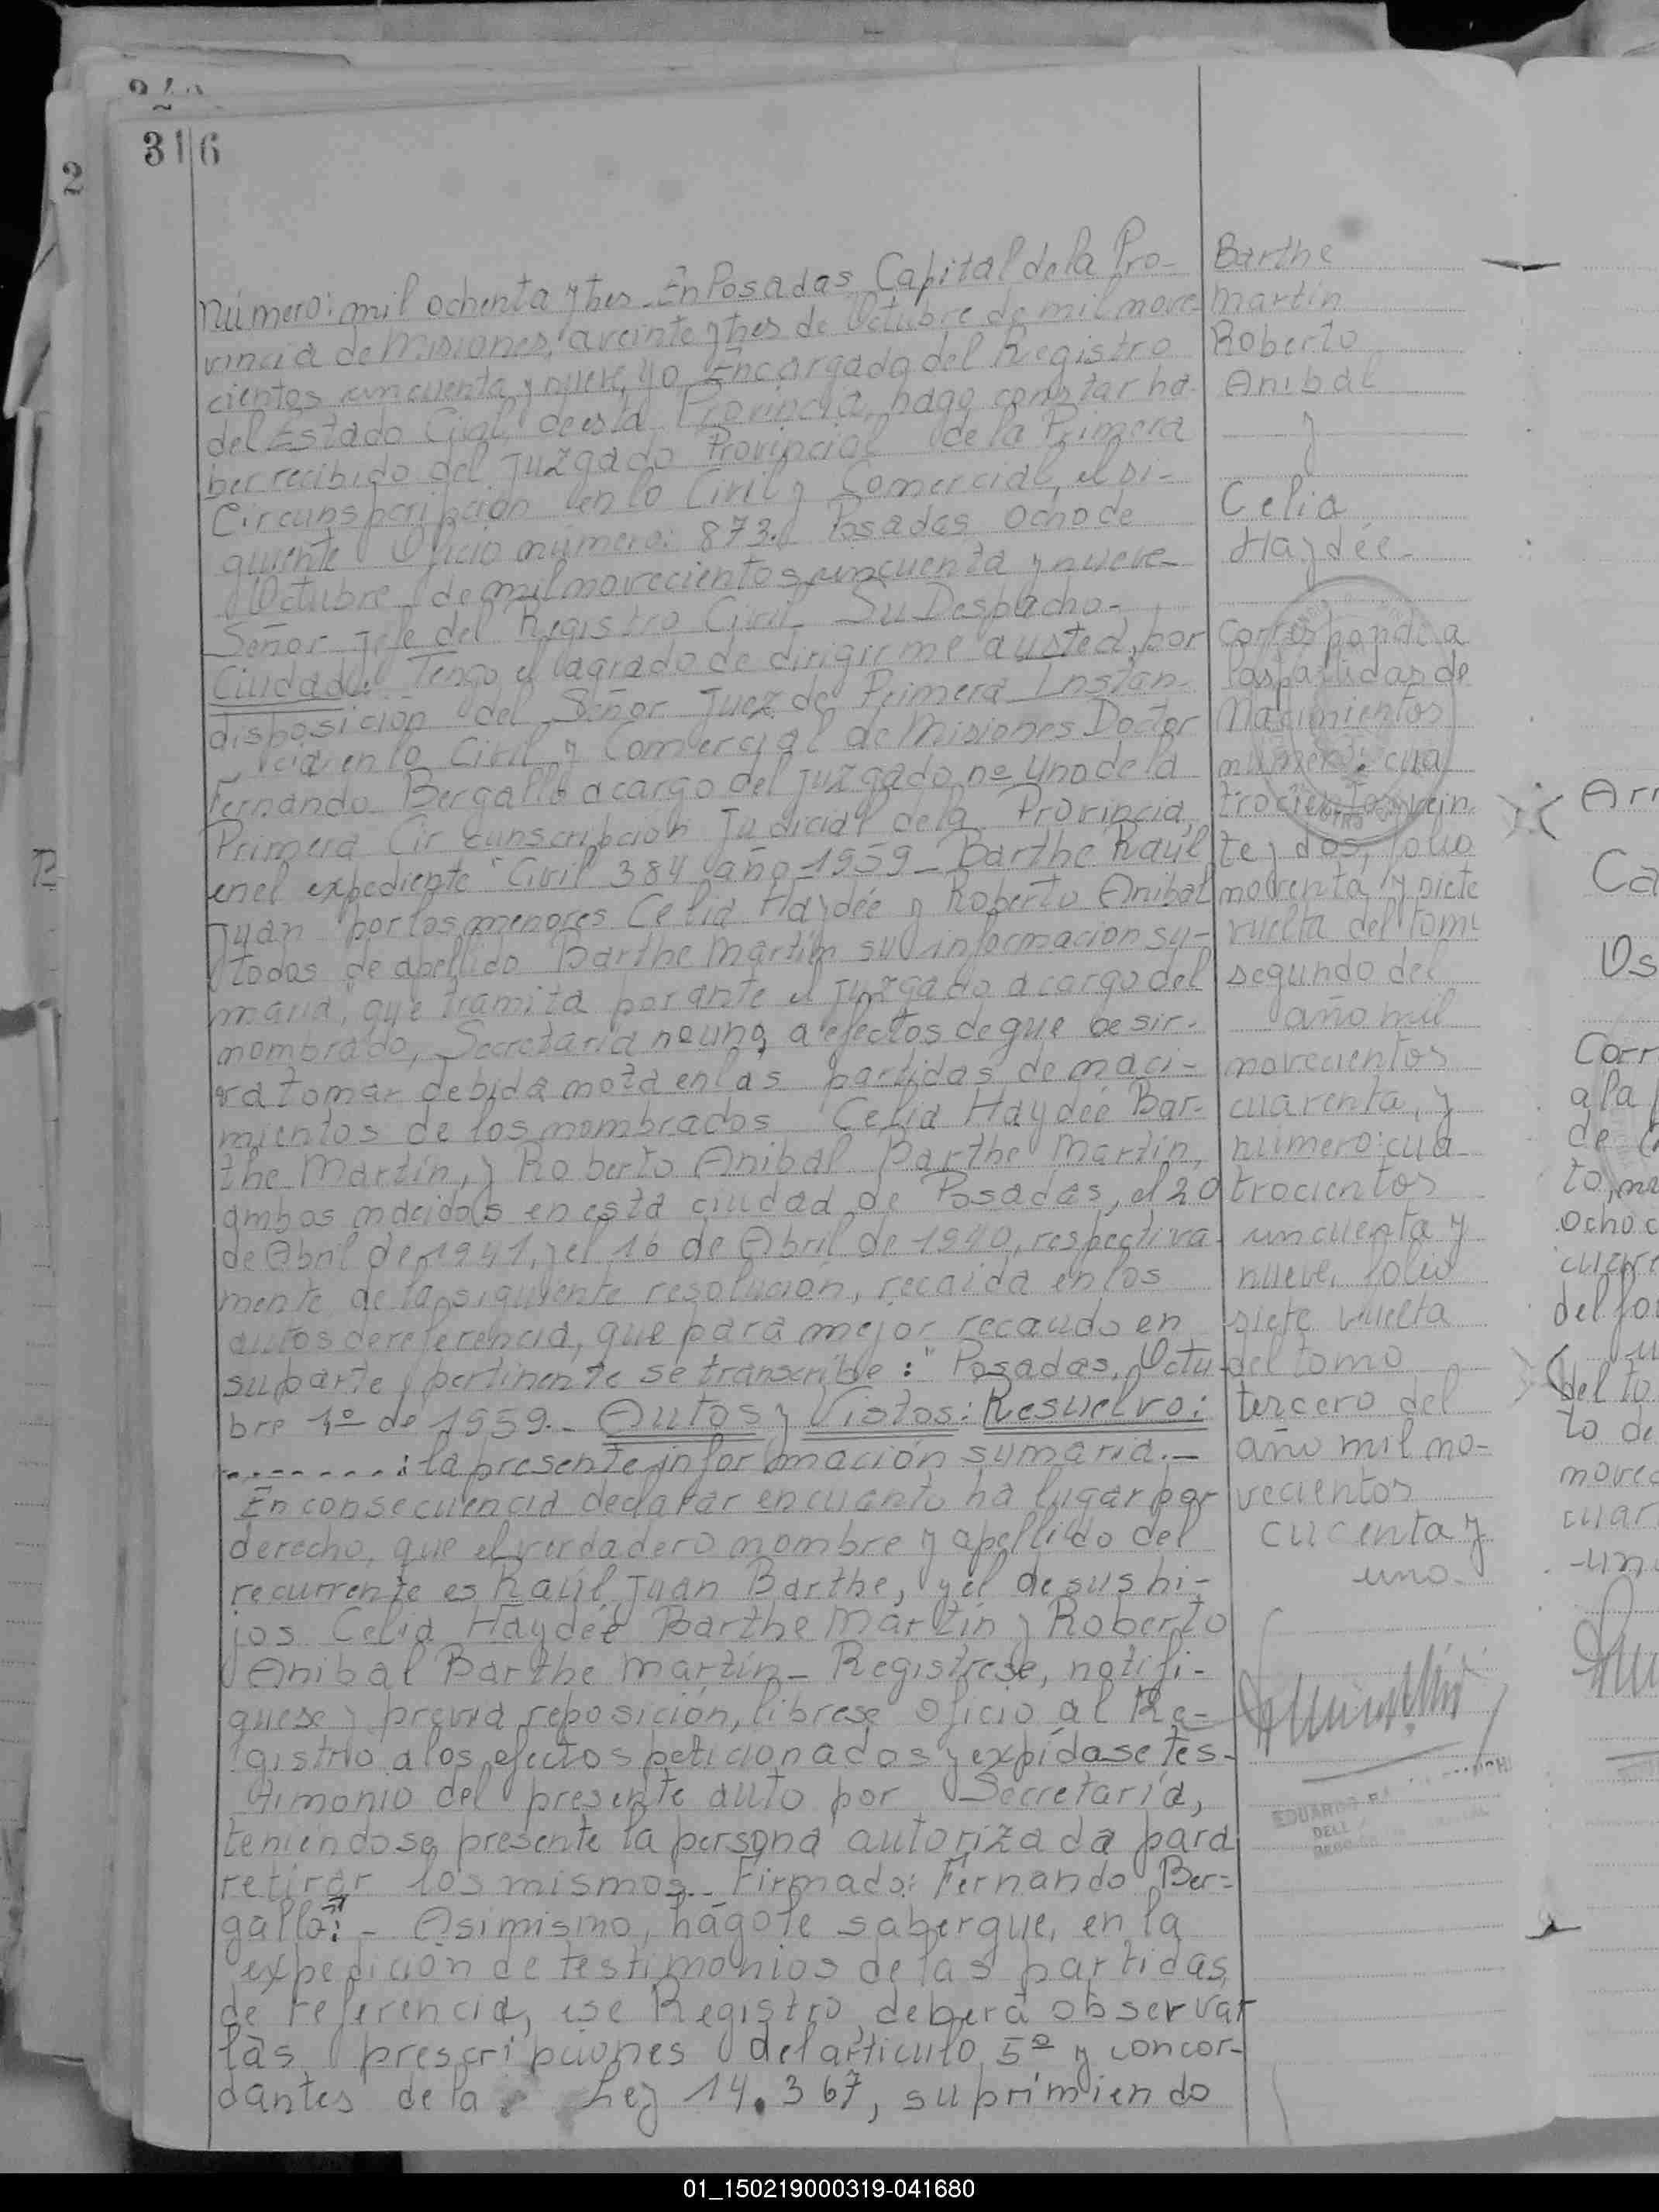 316
2
Número: mil ochenta y tres. En Posadas, Capital de la Pro-
vincia de Misiones, a veinte y tres de Octubre de mil nove-
cientos cincuenta y nueve, yo Encargado del Registro
del Estado Civil de esta Provincia, hago constar ha-
ber recibido del Juzgado Provincial de la Primera
Circunscripción en lo Civil y Comercial, el si-
guiente Oficio número: 873. Posadas ocho de
Octubre de mil novecientos cincuenta y nueve-
Señor Jefe del Registro Civil. Su Despacho.-
Ciudad. Tengo el agrado de dirigirme a usted, por
disposición del Señor Juez de Primera Instan-
cia en lo Civil y Comercial de Misiones Doctor
Fernando Bergallo a cargo del Juzgado nº uno de la
Primera Circunscripción Judicial de la Provincia,
en el expediente "Civil 384 año 1959- Barthe Raúl
Juan por los menores Celia Haydée y Roberto Anibal
todos de apellido Barthe Martín su información su-
maria", que tramita por ante el Juzgado a cargo del
nombrado, Secretaría nº uno, a efectos de que se sir-
va tomar debida nota en las partidas de naci-
mientos de los nombrados Celia Haydée Bar-
the Martín, y Roberto Anibal Barthe Martín,
ambos nacidos en esta ciudad de Posadas, el 20
de Abril de 1941, y el 16 de Abril de 1940, respectiva-
mente de la siguiente resolución, recaída en los
autos de referencia, que para mejor recaudo en
su parte pertinente se transcribe: "Posadas, Octu-
bre 1º de 1959.- Autos y Vistos: Resuelvo:
.........: la presente información sumaria.-
En consecuencia declarar en cuanto ha lugar por
derecho, que el verdadero nombre y apellido del
recurrente es Raúl Juan Barthe, y el de sus hi-
jos Celia Haydée Barthe Martín y Roberto
Anibal Barthe Martín- Registrese, notifi-
quese y previa reposición, librese oficio al Re-
gistro a los efectos peticionados y expídase tes-
timonio del presente auto por Secretaría,
teniéndose presente la persona autorizada para
retirar los mismos.- Firmado: Fernando Ber=
gallo".- Asimismo, hágole saber que, en la
expedición de testimonios de las partidas
de referencia, ese Registro deberá observar
las prescripciones del artículo 5º y concor-
dantes de la Ley 14.367, suprimiendo
Barthe
Martín
Roberto
Anibal
y
Celia
Haydée-
Corresponde a
las partidas de
Nacimientos
número: cua
trocientos vein
te y dos, folio
noventa y siete
vuelta del tomo
segundo del
año mil
novecientos
cuarenta, y
número: cua
trocientos
cincuenta y
nueve, folio
siete vuelta
del tomo
tercero del
año mil no-
vecientos
cucenta y
uno-
EDUARDO
Arr
Ca
Os
Corr
a la
de
to, mi
ocho c
cuare
del fol
del to
to de
novec
cuar
-un
01_150219000319-041680